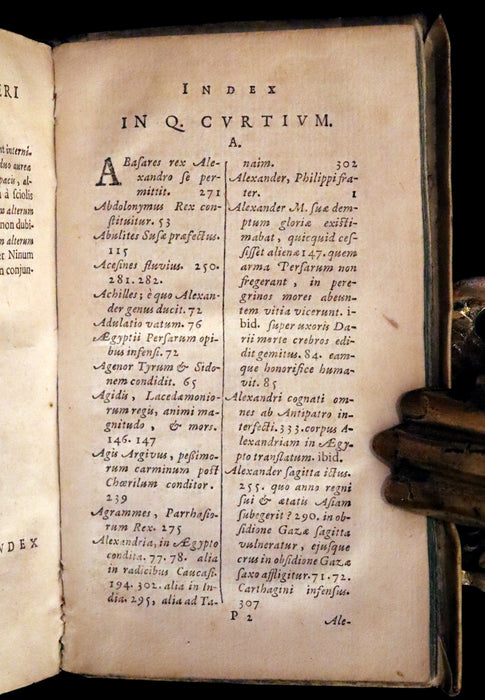 ERI
INDEX
IN Q. CVRTIVM.
A.
ABasares rex Ale-
xandro se per-
mittit. 271
Abdolonymus Rex con-
stituitur. 53
Abulites Susæ præfectus.
115
Acesines fluvius. 250.
281. 282.
Achilles; è quo Alexan-
der genus ducit. 72
Adulatio vatum. 76
Ægyptii Persarum opi-
bus infensi. 72
Agenor Tyrum & Sido
nem condidit. 65
Agidis, Lacedæmonio-
rum regis, animi ma-
gnitudo, & mors.
146. 147
Agis Argivus, pessimo-
rum carminum post
Chœrilum conditor.
239
Agrammes, Parrhasio-
rum Rex. 275
Alexandria, in Ægypto
condita. 77. 78. alia
in radicibus Caucasi.
194. 302. alia in In-
dia. 295, alia ad Ta-
naim. 302
Alexander, Philippi fra-
ter. 1
Alexander M. suæ dem-
ptum gloriæ existi-
mabat, quicquid ces-
sisset alienæ 147. quem
arma Persarum non
fregerant, in pere-
grinos mores abeun-
tem vitia vicerunt. i-
bid. super uxoris Da-
rii morte crebros edi-
dit gemitus. 84. eam-
que honorifice huma-
vit. 85
Alexandri cognati om-
nes ab Antipatro in-
terfecti. 333. corpus A-
lexandriam in Ægy-
pto translatum. ibid.
Alexander sagitta ictus.
255. quo anno regni
sui & ætatis Asiam
subegerit? 290. in ob-
sidione Gazæ sagitta
vulneratur, ejusque
crus in obsidione Gazæ
saxo affligitur. 71. 72.
Carthagini infensus.
307
P 2
Ale-
st interni.
duo aurea
pacis, al-
à sciolis
m alterum
non dubi-
m alterum
et Ninum
n conjun-
NDEX